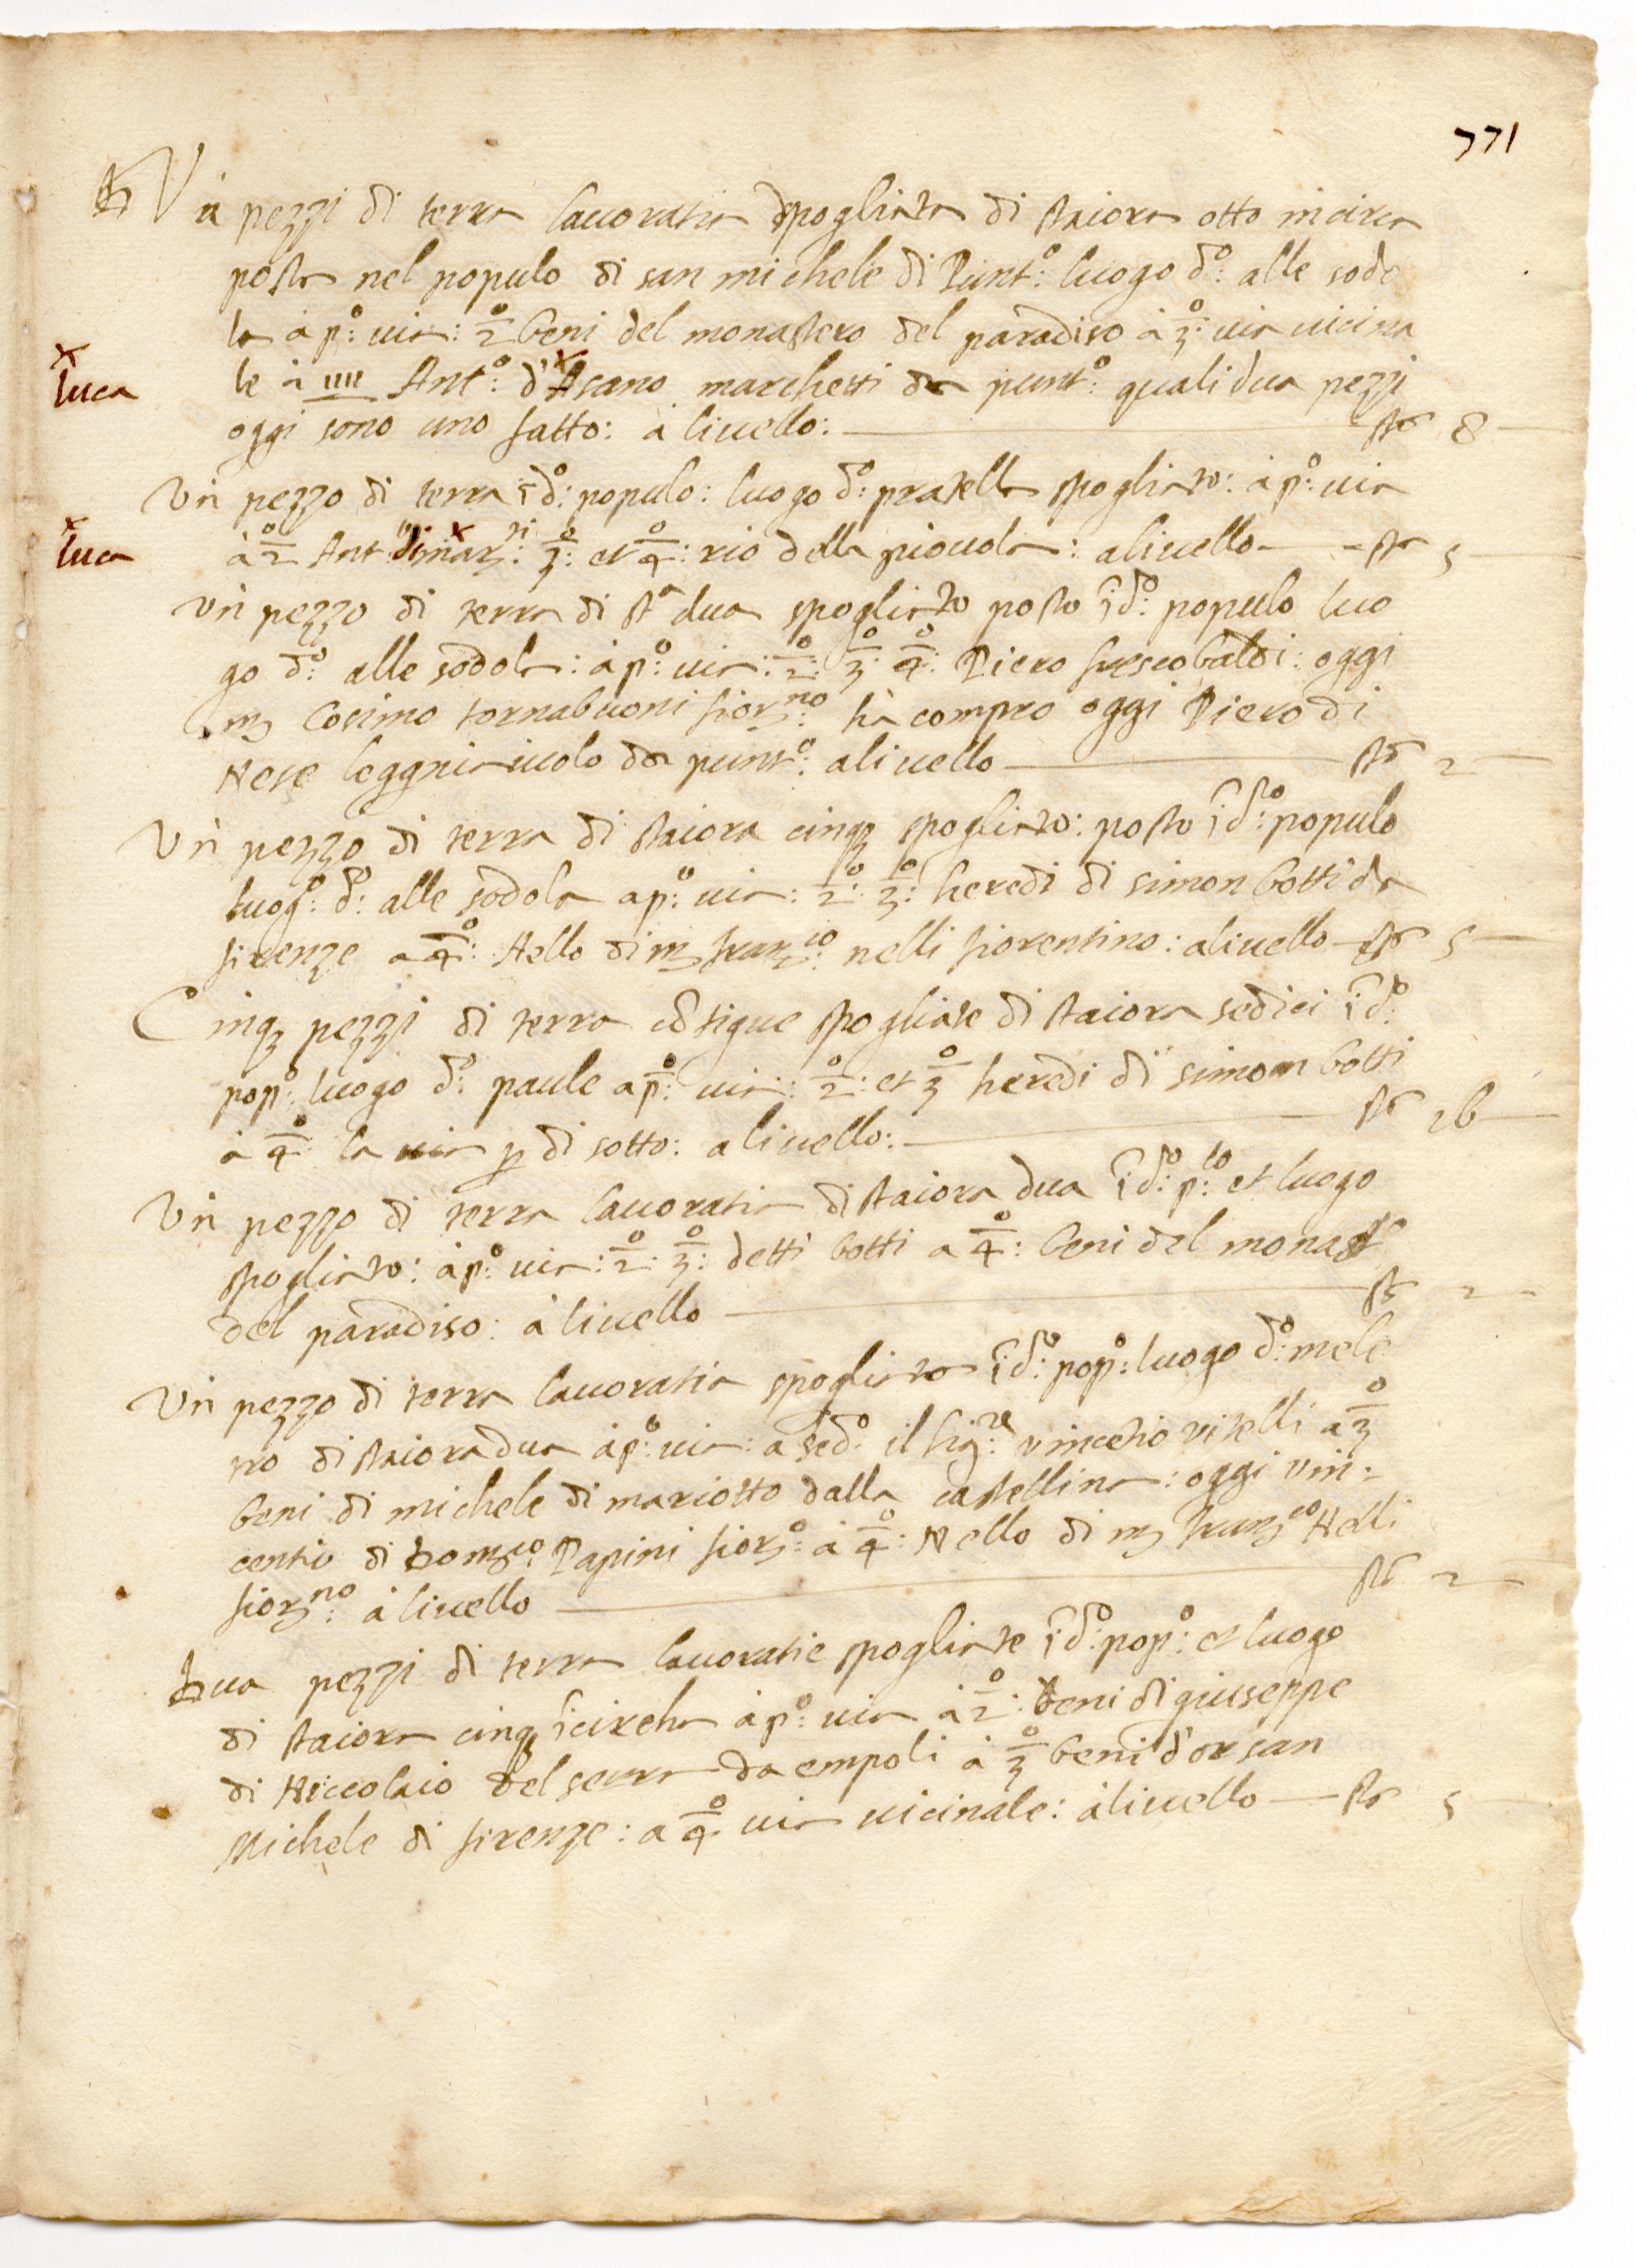 771
Un pezzi di terra lavoratia spogliata di staiora otto incirca
posta nel populo di san michele di Punt.o: luogo d.o: alle sodo
la à p.o: via: 2.o beni del monastero del paradiso à 3.o: via vicina
luca
le à IIII Ant.o: d'Asano marchetti da punt.o: quali dua pezzi
oggi sono uno fatto: à livello: st.a 8
Un pezzo di terra i d.o: populo: luogo d.o: pratella spogliato: à p.o: via
luca
à 2.o Ant di marz.ti: 3.o: et 4.o: rio della piovola: a livello st.a 5
Un pezzo di terra di st.a dua spogliato posto i d.o: populo luo
go d.o: alle sodola: à p.o: via: 2.o: 3.o: 4.o: Piero frescobaldi: oggi
m Cosimo tornabuoni fior.no: hà compro oggi Piero di
Nese leggnaiuolo da punt.o: a livello st.a 2
Un pezzo di terra di staiora cinq3 spogliato: posto i d.o: populo
luog.o: d.o: alle sodola a p.o: via: 2.o: 3.o: heredi di simon botti da
firenze a 4.o: Nello di m franc.co: nelli fiorentino: a livello st.a 5
Cinq3 pezzi di terra cōtigue spogliate di staiora sedici i d.o:
pop.o: luogo d.o: paule a p.o: via: 2.o: et 3.o heredi di simon botti
à 4.o la via p di sotto: a livello: st.a 16
Un pezzo di terra lavoratia di staiora dua i d.o: p.lo: et luogo
spogliato: à p.o: via: 2.o: 3.o: detti botti a 4.o: beni del monast.o
del paradiso: à livello st.a 2
Un pezzo di terra lavoratia spogliato i d.o: pop.o: luogo d.o: mele
to di staiora dua à p.o: via: a sed.o il sig.re: vincetio vitelli a 3.o
beni di michele di mariotto dalla castellina: oggi vin:
centio di Dom.co: Papini fior.o: à 4.o: Nello di m franc.co Nelli
fior.no: à livello st.a 2
Dua pezzi di terra lavoratie spogliate i d.o: pop.o: et luogo
di staiora cinq3 icircha à p.o: via à 2.o: beni di giuseppe
di Niccolaio del serra da empoli à 3.o beni d'orsan
Michele di firenze: a 4.o via vicinale: à livello st.a 5